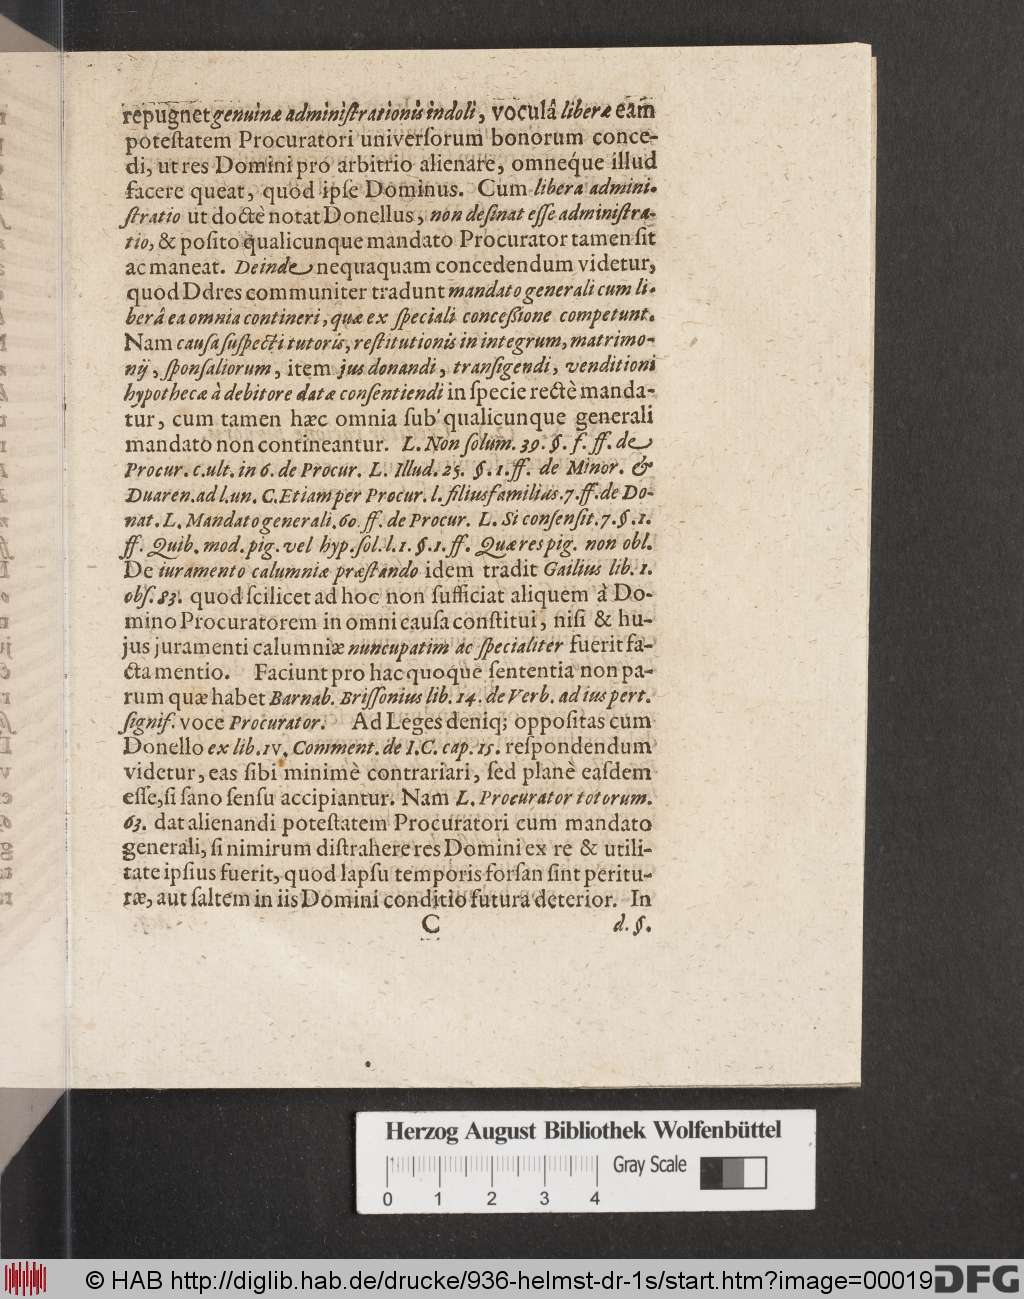 repugnet genuinæ administrationis indoli, voculâ liberæ eam
potestatem Procuratori universorum bonorum conce-
di, ut res Domini pro arbitrio alienare, omneq́ue illud
facere queat, quod ipse Dominus. Cum libera admini-
stratio ut doctè notat Donellus, non desinat esse administra-
tio, & posito qualicunque mandato Procurator tamen sit
ac maneat. Deinde nequaquam concedendum videtur,
quod Ddres communiter tradunt mandato generali cum li-
berâ ea omnia contineri, quæ ex speciali concessione competunt.
Nam causa suspecti tutoris, restitutionis in integrum, matrimo-
nij, sponsaliorum, item jus donandi, transigendi, venditioni
hypothecæ à debitore datæ consentiendi in specie rectè manda-
tur, cum tamen hæc omnia sub qualicunque generali
mandato non contineantur. L. Non solum. 39. §. f. ff. de
Procur. c. ult. in 6. de Procur. L. Illud. 25. §. 1. ff. de Minor. &
Duaren. ad l. un. C. Etiam per Procur. l. filiusfamilias. 7. ff. de Do-
nat. L. Mandato generali. 60 ff. de Procur. L. Si consensit. 7. §. 1.
ff. Quib. mod. pig. vel hyp. sol. l. 1. §. 1. ff. Quæ res pig. non obl.
De iuramento calumniæ præstando idem tradit Gailius lib. 1.
obs. 83. quod scilicet ad hoc non sufficiat aliquem à Do-
mino Procuratorem in omni causa constitui, nisi & hu-
jus juramenti calumniæ nuncupatim ac specialiter fuerit fa-
cta mentio. Faciunt pro hac quoque sententia non pa-
rum quæ habet Barnab. Brissonius lib. 14. de Verb. ad ius pert.
signif. voce Procurator. Ad Leges deniq; oppositas cum
Donello ex lib. IV. Comment. de I. C. cap. 15. respondendum
videtur, eas sibi minimè contrariari, sed planè easdem
esse, si sano sensu accipiantur. Nam L. Procurator totorum.
63. dat alienandi potestatem Procuratori cum mandato
generali, si nimirum distrahere res Domini ex re & utili-
tate ipsius fuerit, quod lapsu temporis forsan sint peritu-
ræ, aut saltem in iis Domini conditio futura deterior. In
C d. §.
Herzog August Bibliothek Wolfenbüttel
Gray Scale
0 1 2 3 4
© HAB http://diglib.hab.de/drucke/936-helmst-dr-1s/start.htm?image=00019
DFG